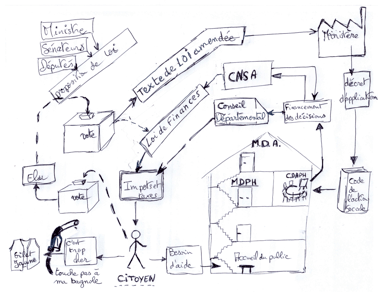 Ministre
Sénateurs
Députés
Proposition de loi
Texte de LOI amendée
Ministère
décret
d'application
CNSA
Conseil
Départemental
Financement
des décisions
Loi de Finances
vote
Elus
vote
Impôts et
taxes
M.D.A.
MDPH
CDAPH
Code
de
l'action
sociale
Gilet
Jaune
C'est
trop
cher
Touche pas à
ma bagnole
CITOYEN
Besoin
d'aide
Accueil du public